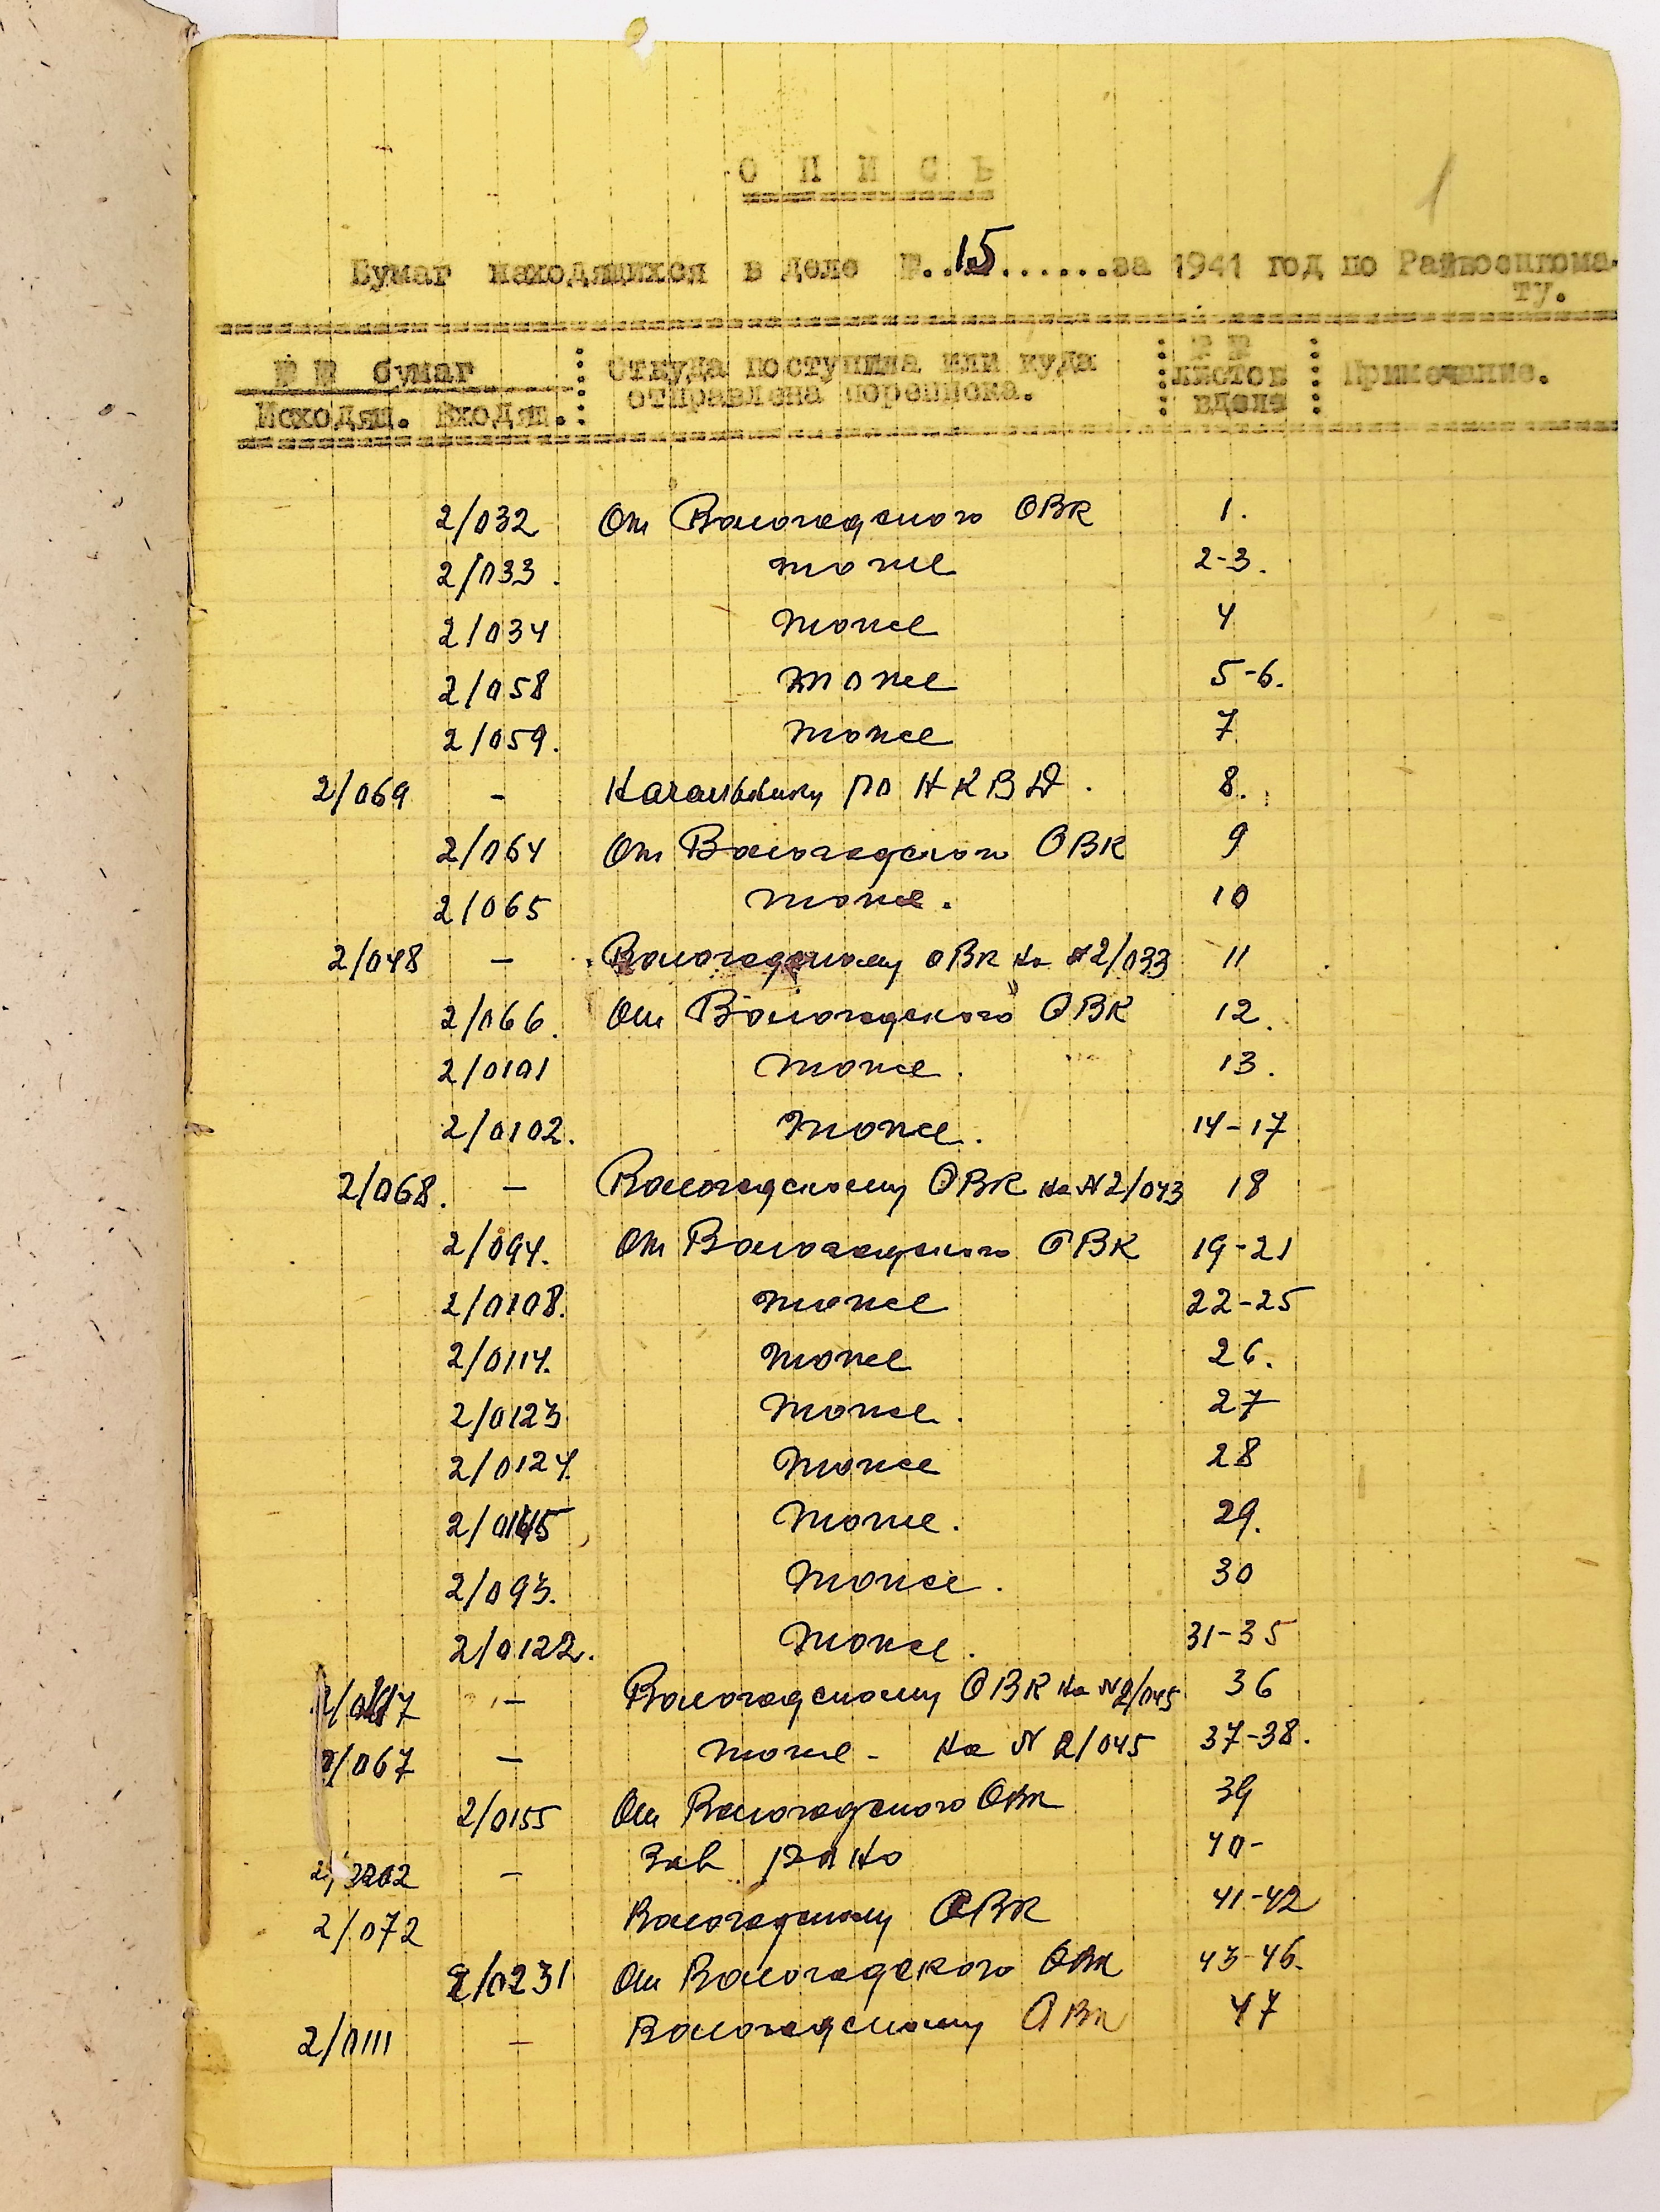 1
О П И С Ь
Бумаг находящихся в деле №..15......за 1941 год по Райвоенкома-
ту.
№ № бумаг : Откуда поступила или куда : № № : Примечание.
отправлена переписка. : листов :
Исходящ. Входящ. : вделе
2/032 От Вологодского ОВК 1.
2/033. тоже 2-3.
2/034 тоже 4
2/058 тоже 5-6.
2/059. тоже 7
2/069 - Начальнику РО НКВД. 8.
2/064 От Вологодского ОВК 9
2/065 тоже. 10
2/048 - Вологодскому ОВК на №2/033 11
2/066. От Вологодского ОВК 12.
2/0101 тоже. 13.
2/0102. тоже. 14-17
2/068. - Вологодскому ОВК на №2/043 18
2/094. От Вологодского ОВК 19-21
2/0108. тоже 22-25
2/0114. тоже 26.
2/0123 тоже. 27
2/0124. тоже 28
тоже. 29.
2/093. тоже. 30
2/0122. тоже. 31-35
- Вологодскому ОВК на №2/045 36
2/067 - тоже - на № 2/045 37-38.
2/0155 От Вологодского ОВК 39
- Зав РОНО 40-
2/072 Вологодскому ОВК 41-42
2/0231 От Вологодского ОВК 43-46.
2/0111 - Вологодскому ОВК 47